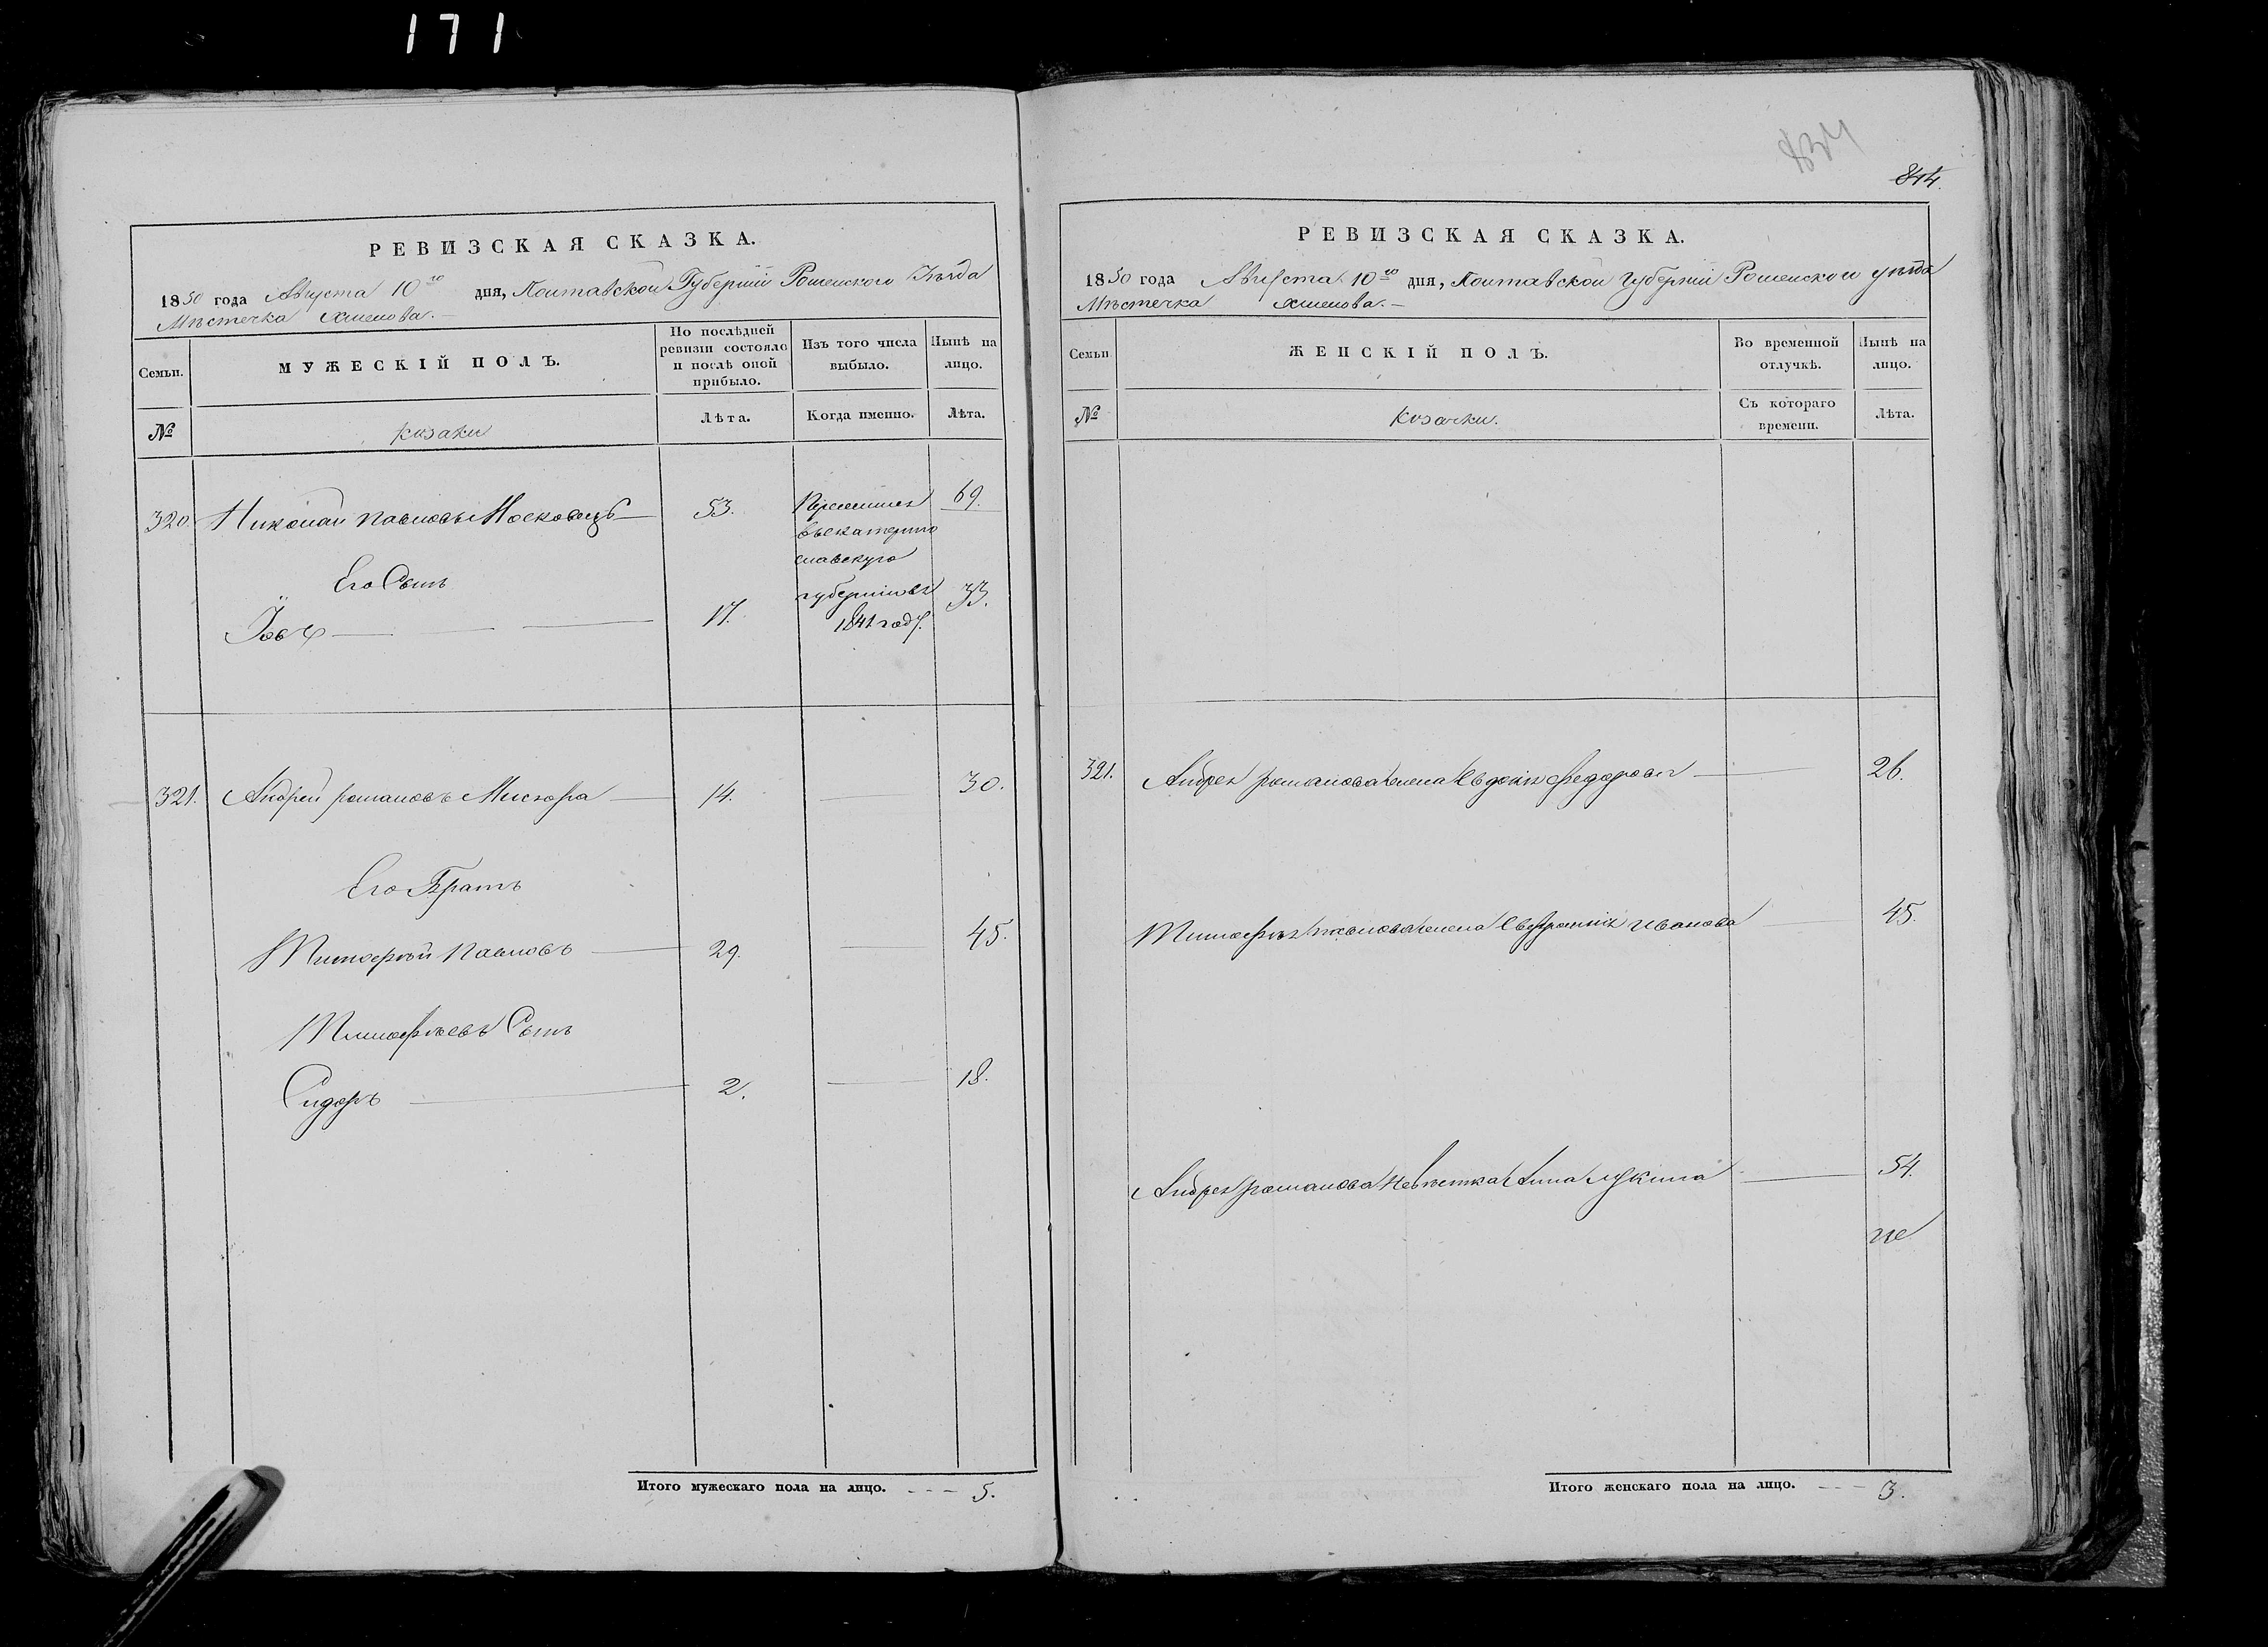 171
РЕВИЗСКАЯ СКАЗКА.
1850 года Августа 10го дня, Полтавской Губерніи Роменского Уѣзда
Мѣстечка Хмелова.
Семьи.
МУЖЕСКІЙ ПОЛЪ.
По послѣдней ревизіи состояло и послѣ оной прибыло.
Изъ того числа выбыло.
Нынѣ на лицо.
№
козаки
Лѣта.
Когда именно.
Лѣта.
320. Николай Павловъ Московецъ 53. 69.
Переселился
въ екатерино
славскую
губернію въ
1841 году.
Его Сынъ
Іовъ 17. 33.
321. Андрей романовъ 14. 30.
Его Братъ
Тимофѣй Павловъ 29. 45.
Тимофѣевъ Сынъ
Сидоръ 2. 18.
Итого мужескаго пола на лицо. 5.
834
844.
РЕВИЗСКАЯ СКАЗКА.
1850 года Августа 10го дня, Полтавской Губерніи Роменского уѣзда
Мѣстечка Хмелова.
Семьи
ЖЕНСКІЙ ПОЛЪ.
Во временной отлучкѣ.
Нынѣ на лицо.
№
козачки.
Съ котораго времени.
Лѣта.
321. Андрея романова жена Евдокія Федорова 26.
Тимофѣя павлова жена Ивановa 45.
Андрея романова Невѣстка Анна лукина 54.
Итого женскаго пола на лицо. 3.